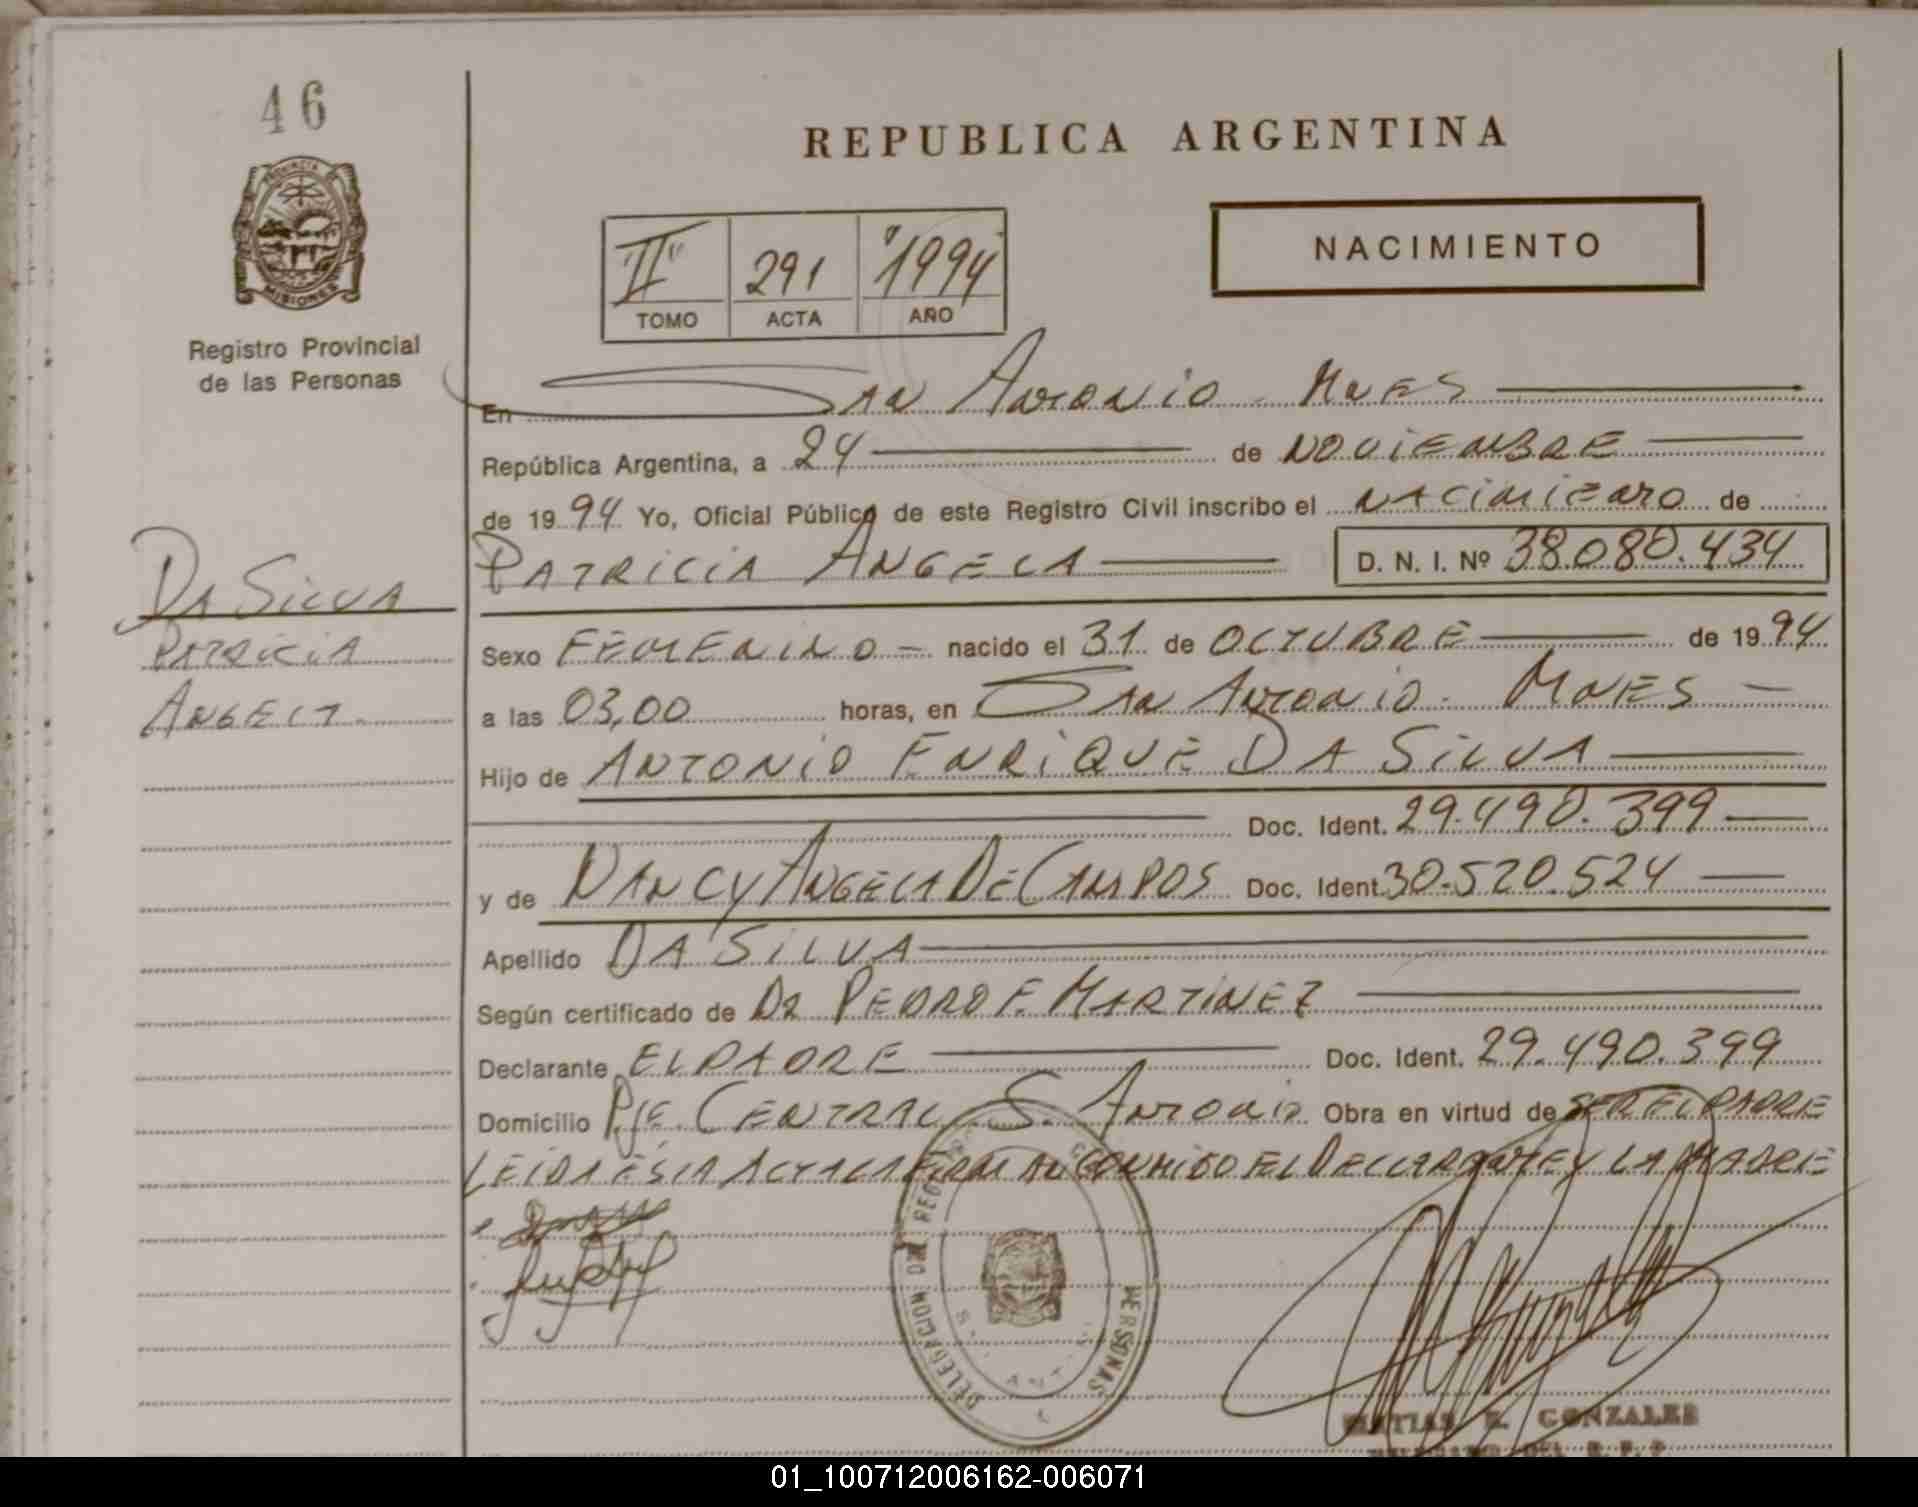 46
PROVINCIA
MISIONES
Registro Provincial
de las Personas
REPUBLICA ARGENTINA
"II" 291 "1994"
TOMO ACTA AÑO
NACIMIENTO
En San Antonio - Mnes
República Argentina, a 24 de NOVIEMBRE
de 1994 Yo, Oficial Público de este Registro Civil inscribo el NACIMIENTO de
PATRICIA ANGELA D. N. I. Nº 38.080.434
DA SILVA
PATRICIA
ANGELA
Sexo FEMENINO - nacido el 31 de OCTUBRE de 1994
a las 03,00 horas, en San Antonio - MNES -
Hijo de ANTONIO ENRIQUE DA SILVA
Doc. Ident. 29.490.399
y de NANCY ANGELA DE CAMPOS Doc. Ident. 30.520.524
Apellido DA SILVA
Según certificado de DR PEDRO F. MARTINEZ
Declarante EL PADRE Doc. Ident. 29.490.399
Domicilio Pje. CENTRAL S. Antonio Obra en virtud de SER EL PADRE
LEIDA ESTA ACTA LA FIRMAN CONMIGO EL DECLARANTE Y LA MADRE
DELEGACION DE REG PERSONAS
MATIAS R. GONZALES
01_100712006162-006071